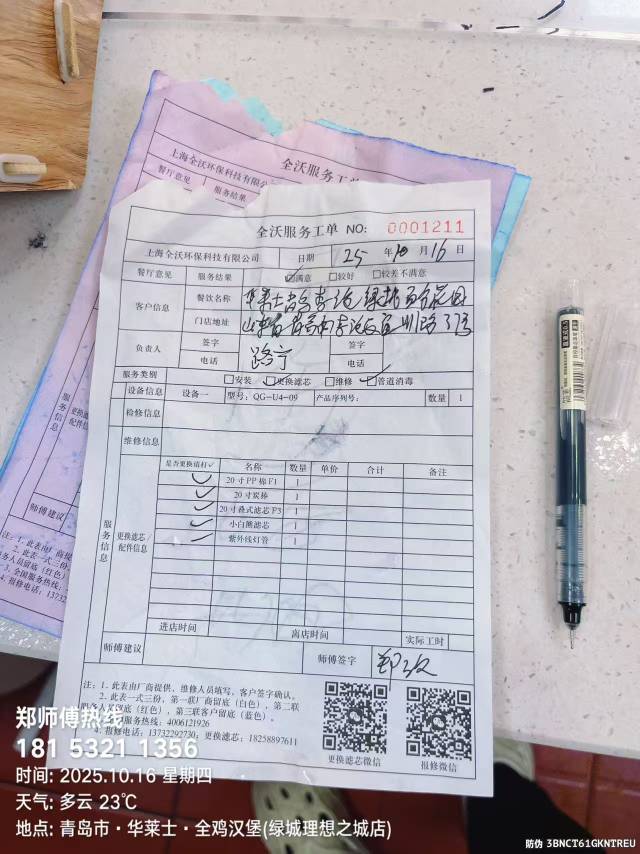 上海全沃环保科技有限公
全沃服务工单
餐厅意见
服务结果
全沃服务工单 NO: 0001211
上海全沃环保科技有限公司 日期 25 年 10 月 16 日
餐厅意见 服务结果 ☑满意 □较好 □较差不满意
客户信息 餐饮名称 华莱士青岛李沧绿城
门店地址 山东省青岛市李沧区
负责人 签字 签字
电话 路宁 电话
服务类别 □安装 ☑更换滤芯 □维修 ☑管道消毒
设备信息 设备一 型号: QG-U4-09 产品序列号: 数量 1
检修信息
维修信息
服务信息
更换滤芯/配件信息
是否更换请打✓ 名称 数量 单价 合计 备注
✓ 20寸PP棉F1 1
✓ 20寸炭棒 1
✓ 20寸叠式滤芯F3 1
✓ 小白熊滤芯 1
✓ 紫外线灯管 1
进店时间 离店时间 实际工时
师傅建议 师傅签字 郑
注: 1. 此表由厂商提供, 维修人员填写, 客户签字确认。
2. 此表一式三份, 第一联厂商留底(白色), 第二联
务人员留底(红色), 第三联客户留底(蓝色)。
服务热线: 4006121926
4. 报修电话: 13732292730; 更换滤芯: 18258897611
更换滤芯微信 报修微信
郑师傅热线
181 5321 1356
时间: 2025.10.16 星期四
天气: 多云 23℃
地点: 青岛市·华莱士·全鸡汉堡(绿城理想之城店)
防伪 3BNCT61GKNTREU